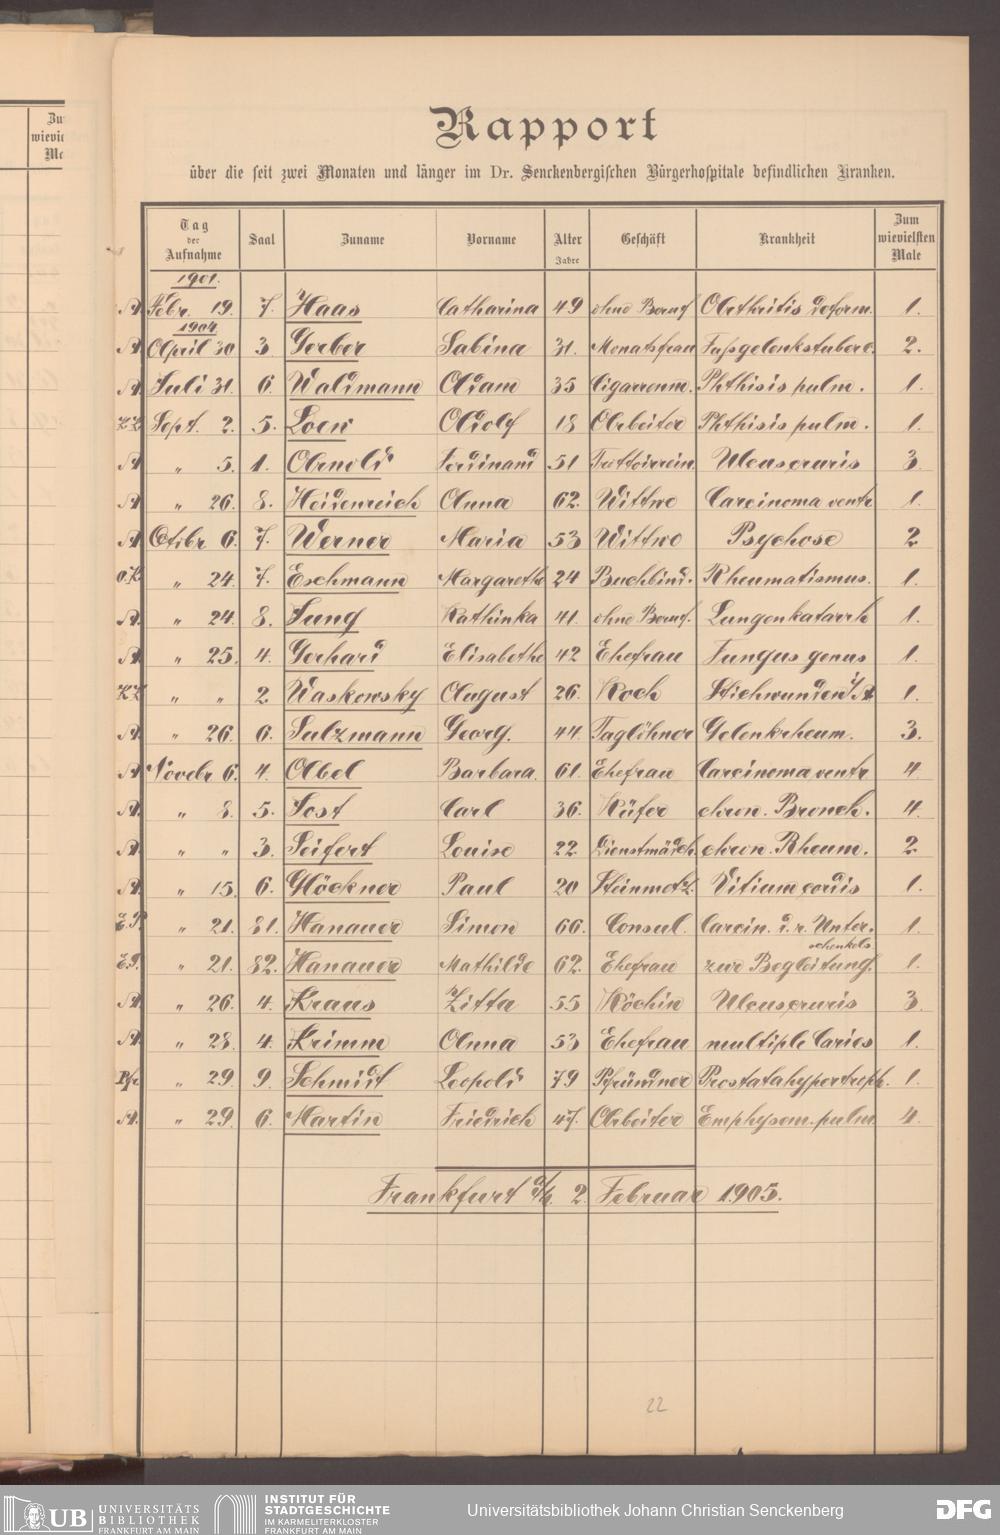 Zu
wievie
Ma
Rapport
über die seit zwei Monaten und länger im Dr. Senckenbergischen Bürgerhospitale befindlichen Kranken.
Tag der Aufnahme Saal Zuname Vorname Alter Jahre Geschäft Krankheit Zum wievielsten Male
1901.
A. Febr. 19. 7. Haas Catharina 49 ohne Beruf Arthritis deform. 1.
1904
A. April 30 3 Gerber Sabina 31. Monatsfrau Fußgelenkstuberc. 2.
A. Juli 31. 6. Waldmann Adam 35 Cigarrenm. Phthisis pulm. 1.
Sept. 2. 5. Loew Adolf 18 Arbeiter Phthisis pulm. 1.
A. " 5. 1. Arnold Ferdinand 51 Trottoirrein. Ulcus cruris 3
A. " 26. 8. Heidenreich Anna 62. Wittwe Carcinoma ventr 1.
A. Octbr 6. 7. Werner Maria 53 Wittwe Psychose 2
O.K. " 24. 7. Eschmann Margarethe 24 Buchbind. Rheumatismus. 1.
A. " 24. 8. Jung Kathinka 41. ohne Beruf. Lungenkatarrh 1.
A. " 25. 4. Gerhard Elisabethe 42 Ehefrau Fungus genus 1.
" " 2 Waskowsky August 26. Koch Stichwunden 1.
A. " 26. 6. Sulzmann Georg. 44. Taglöhner Gelenkrheum. 3.
A. Novebr 6. 4. Abel Barbara. 61. Ehefrau Carcinoma ventr 4
A. " 8. 5. Jost Carl 36. Küfer chron. Bronch. 4.
A. " " 3. Seifert Louise 22 Dienstmädch. chron. Rheum. 2
A. " 15. 6. Glöckner Paul 20 Steinmetz. Vitium cordis 1.
E.P. " 21. 31. Hanauer Simon 66. Consul Carcin. d. r. Unter-
schenkels 1.
E.P. " 21. 32. Hanauer Mathilde 62. Ehefrau zur Begleitung. 1.
A. " 26. 4. Kraus Zitta 55 Köchin Ulcus cruris 3
A. " 28. 4. Krimm Anna 53 Ehefrau multiple Caries 1.
Pfr. " 29. 9. Schmidt Leopold 79 Pfründner Prostatahypertroph. 1.
A. " 29. 6. Martin Friedrich 47. Arbeiter Emphysem. pulm. 4.
Frankfurt a/M. 2. Februar 1905.
22
UB UNIVERSITÄTS
BIBLIOTHEK
FRANKFURT AM MAIN
INSTITUT FÜR
STADTGESCHICHTE
IM KARMELITERKLOSTER
FRANKFURT AM MAIN
Universitätsbibliothek Johann Christian Senckenberg
DFG